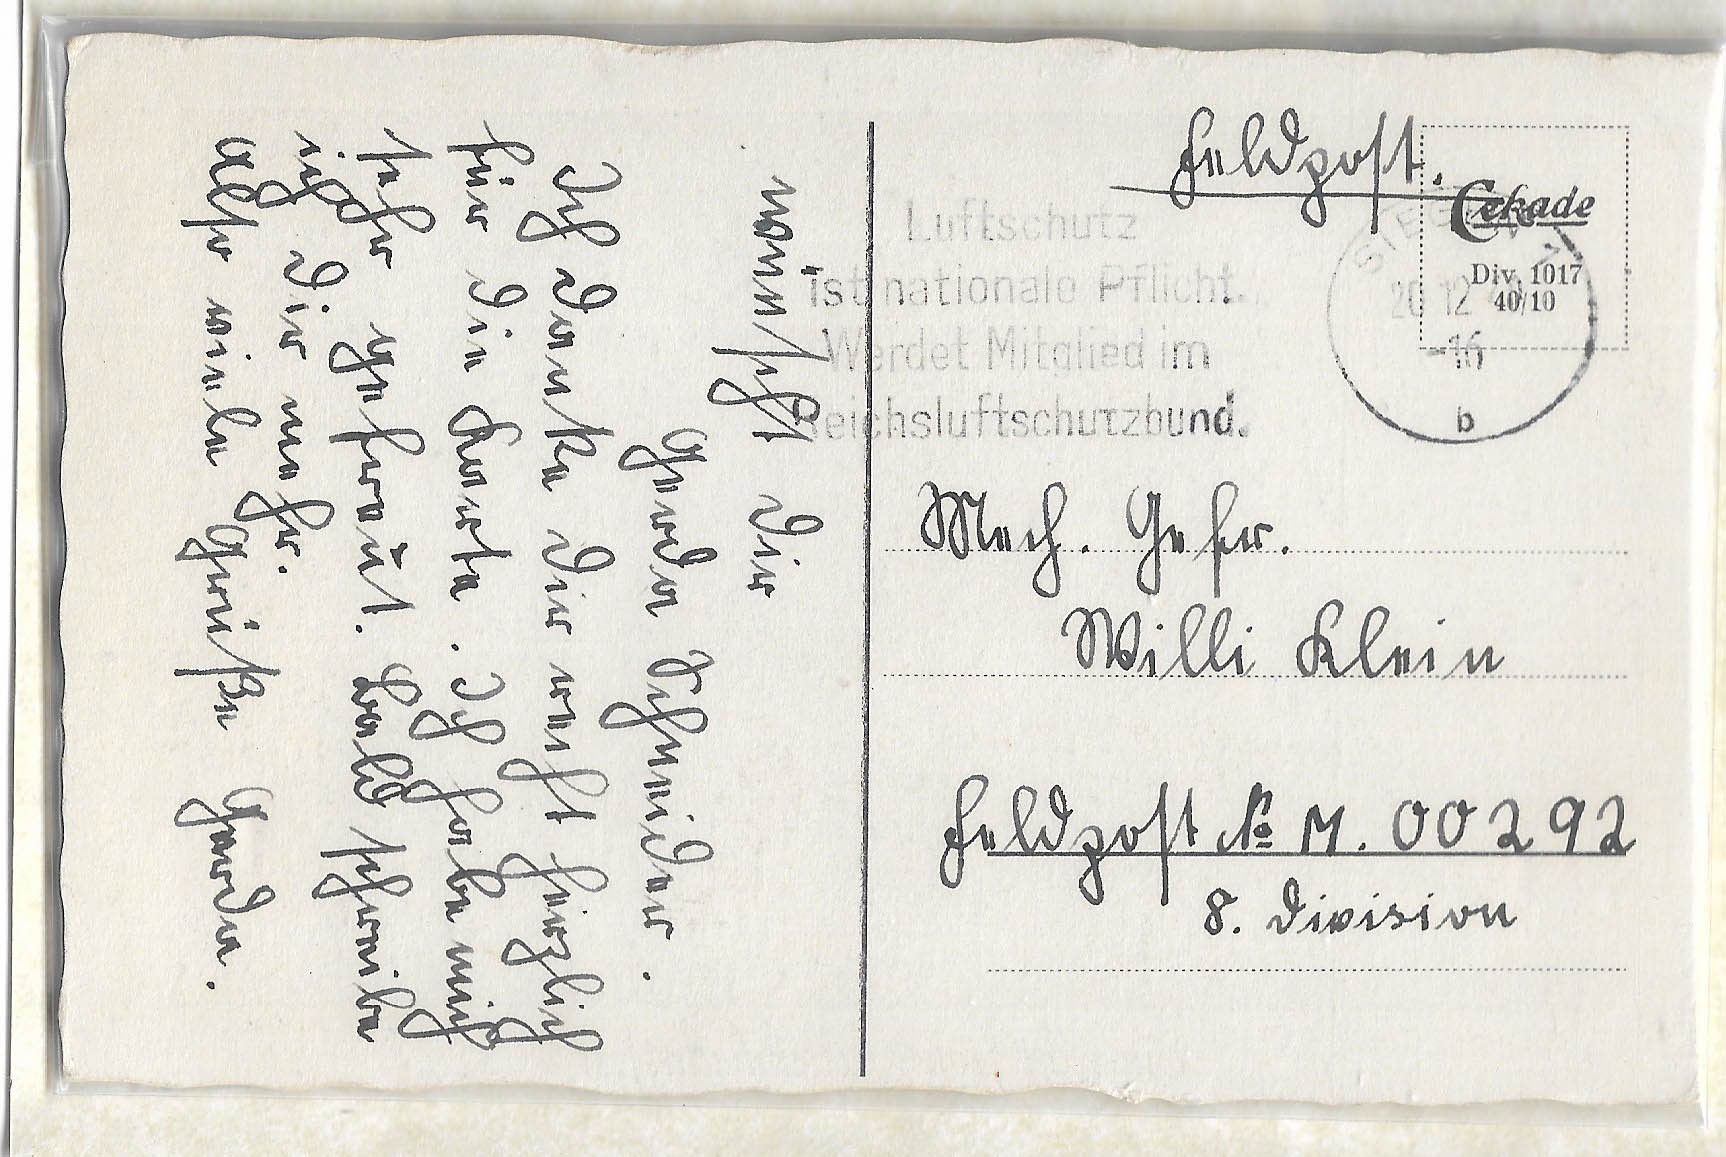 wünscht Dir
Gerda Schneider.
Ich danke Dir recht herzlich
für die Karte. Ich habe mich
sehr gefreut. Bald schreibe
ich Dir mehr.
Also viele Grüße Gerda.
Feldpost.
Cekade
Div. 1017
40/10
SIEGEN
20.12
-16
b
Luftschutz
ist nationale Pflicht.
Werdet Mitglied im
Reichsluftschutzbund.
Mech. Gefr.
Willi Klein
Feldpost № M. 00292
8. Division